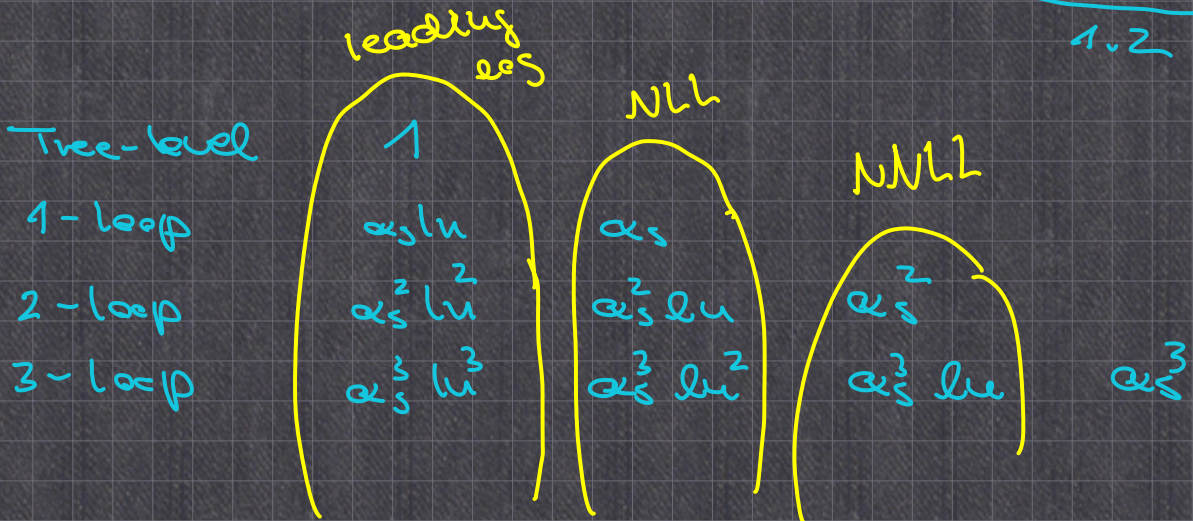 1.2
leading
logs
NLL
NNLL
Tree-level 1
1-loop αs ln αs
2-loop αs² ln² αs² ln αs²
3-loop αs³ ln³ αs³ ln² αs³ ln αs³